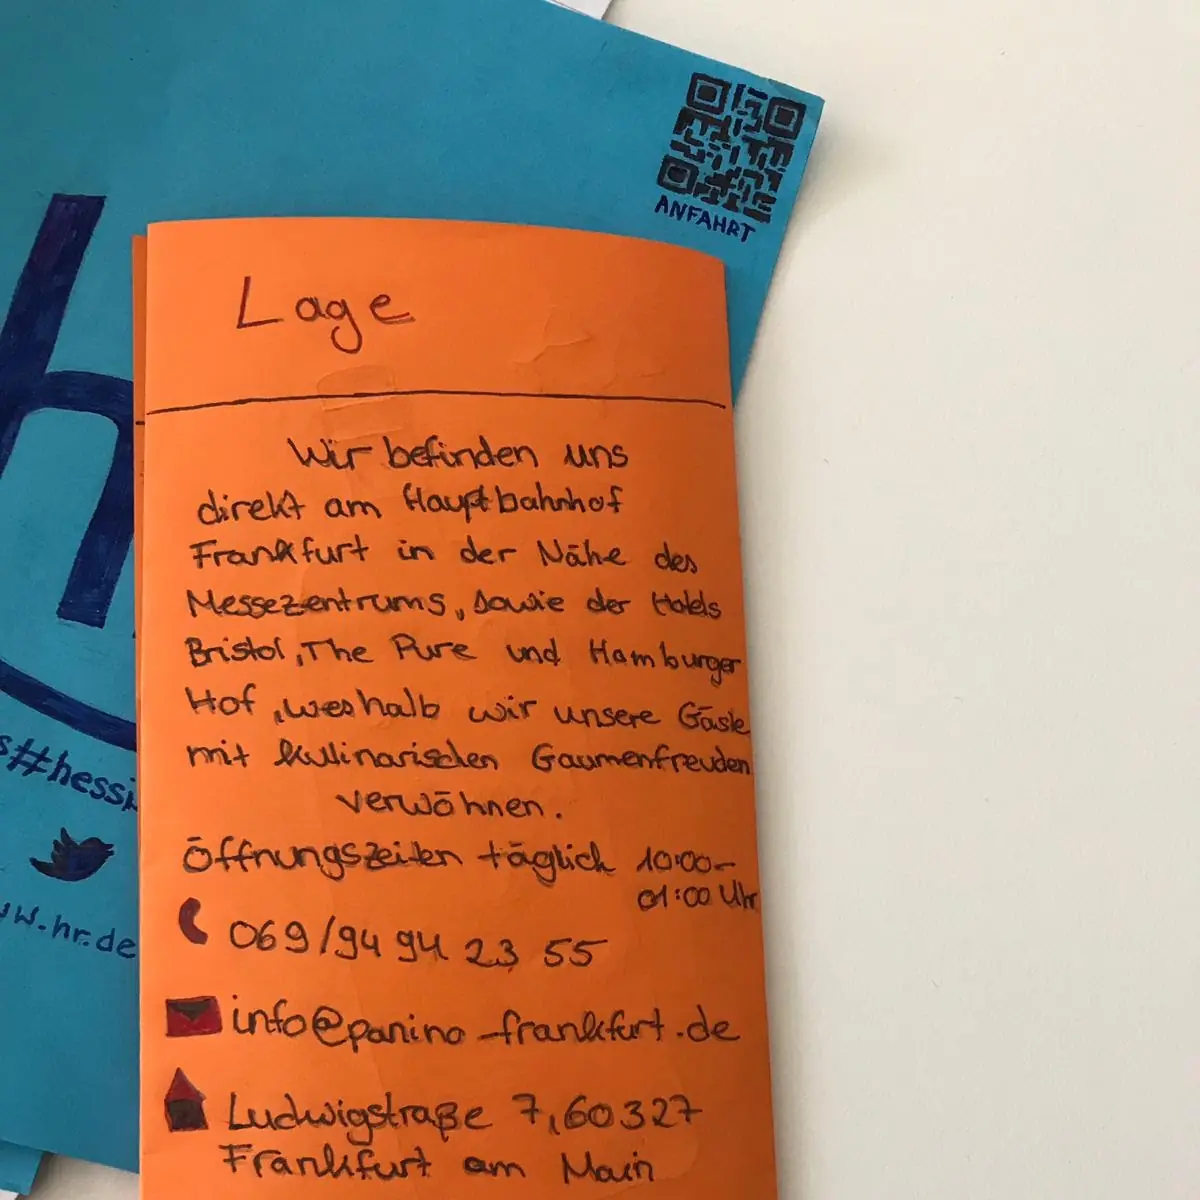 ANFAHRT
Lage
Wir befinden uns
direkt am Hauptbahnhof
Frankfurt in der Nähe des
Messezentrums, sowie der Hotels
Bristol, The Pure und Hamburger
Hof, weshalb wir unsere Gäste
mit kulinarischen Gaumenfreuden
verwöhnen.
Öffnungszeiten täglich 10:00-
01:00 Uhr
069/94 94 23 55
info@panino-frankfurt.de
Ludwigstraße 7, 60327
Frankfurt am Main
h
s#hessi
w.hr.de